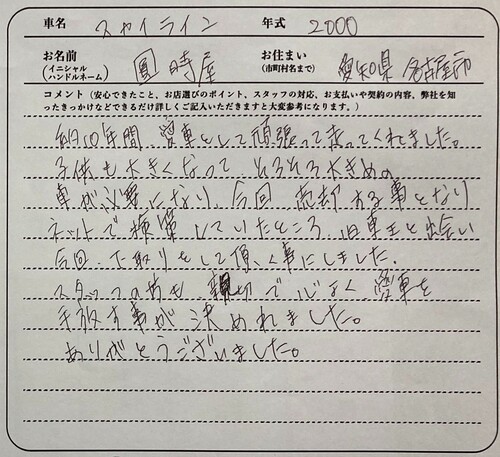 車名 スカイライン 年式 2000
お名前 (イニシャル ハンドルネーム) 時屋 お住まい (市町村名まで) 愛知県 名古屋市
コメント(安心できたこと、お店選びのポイント、スタッフの対応、お支払いや契約の内容、弊社を知
ったきっかけなどできるだけ詳しくご記入いただきますと大変参考になります。)
約10年間、愛車として頑張って走ってくれました。
子供も大きくなって、そろそろ大きめの
車が必要になり、今回、売却する事となり
ネットで検策していたところ、旧車王と出会い
今回、下取りをして頂く事にしました。
スタッフの方も 親切で心よく愛車を
手放す事が 決めれました。
ありがとうございました。